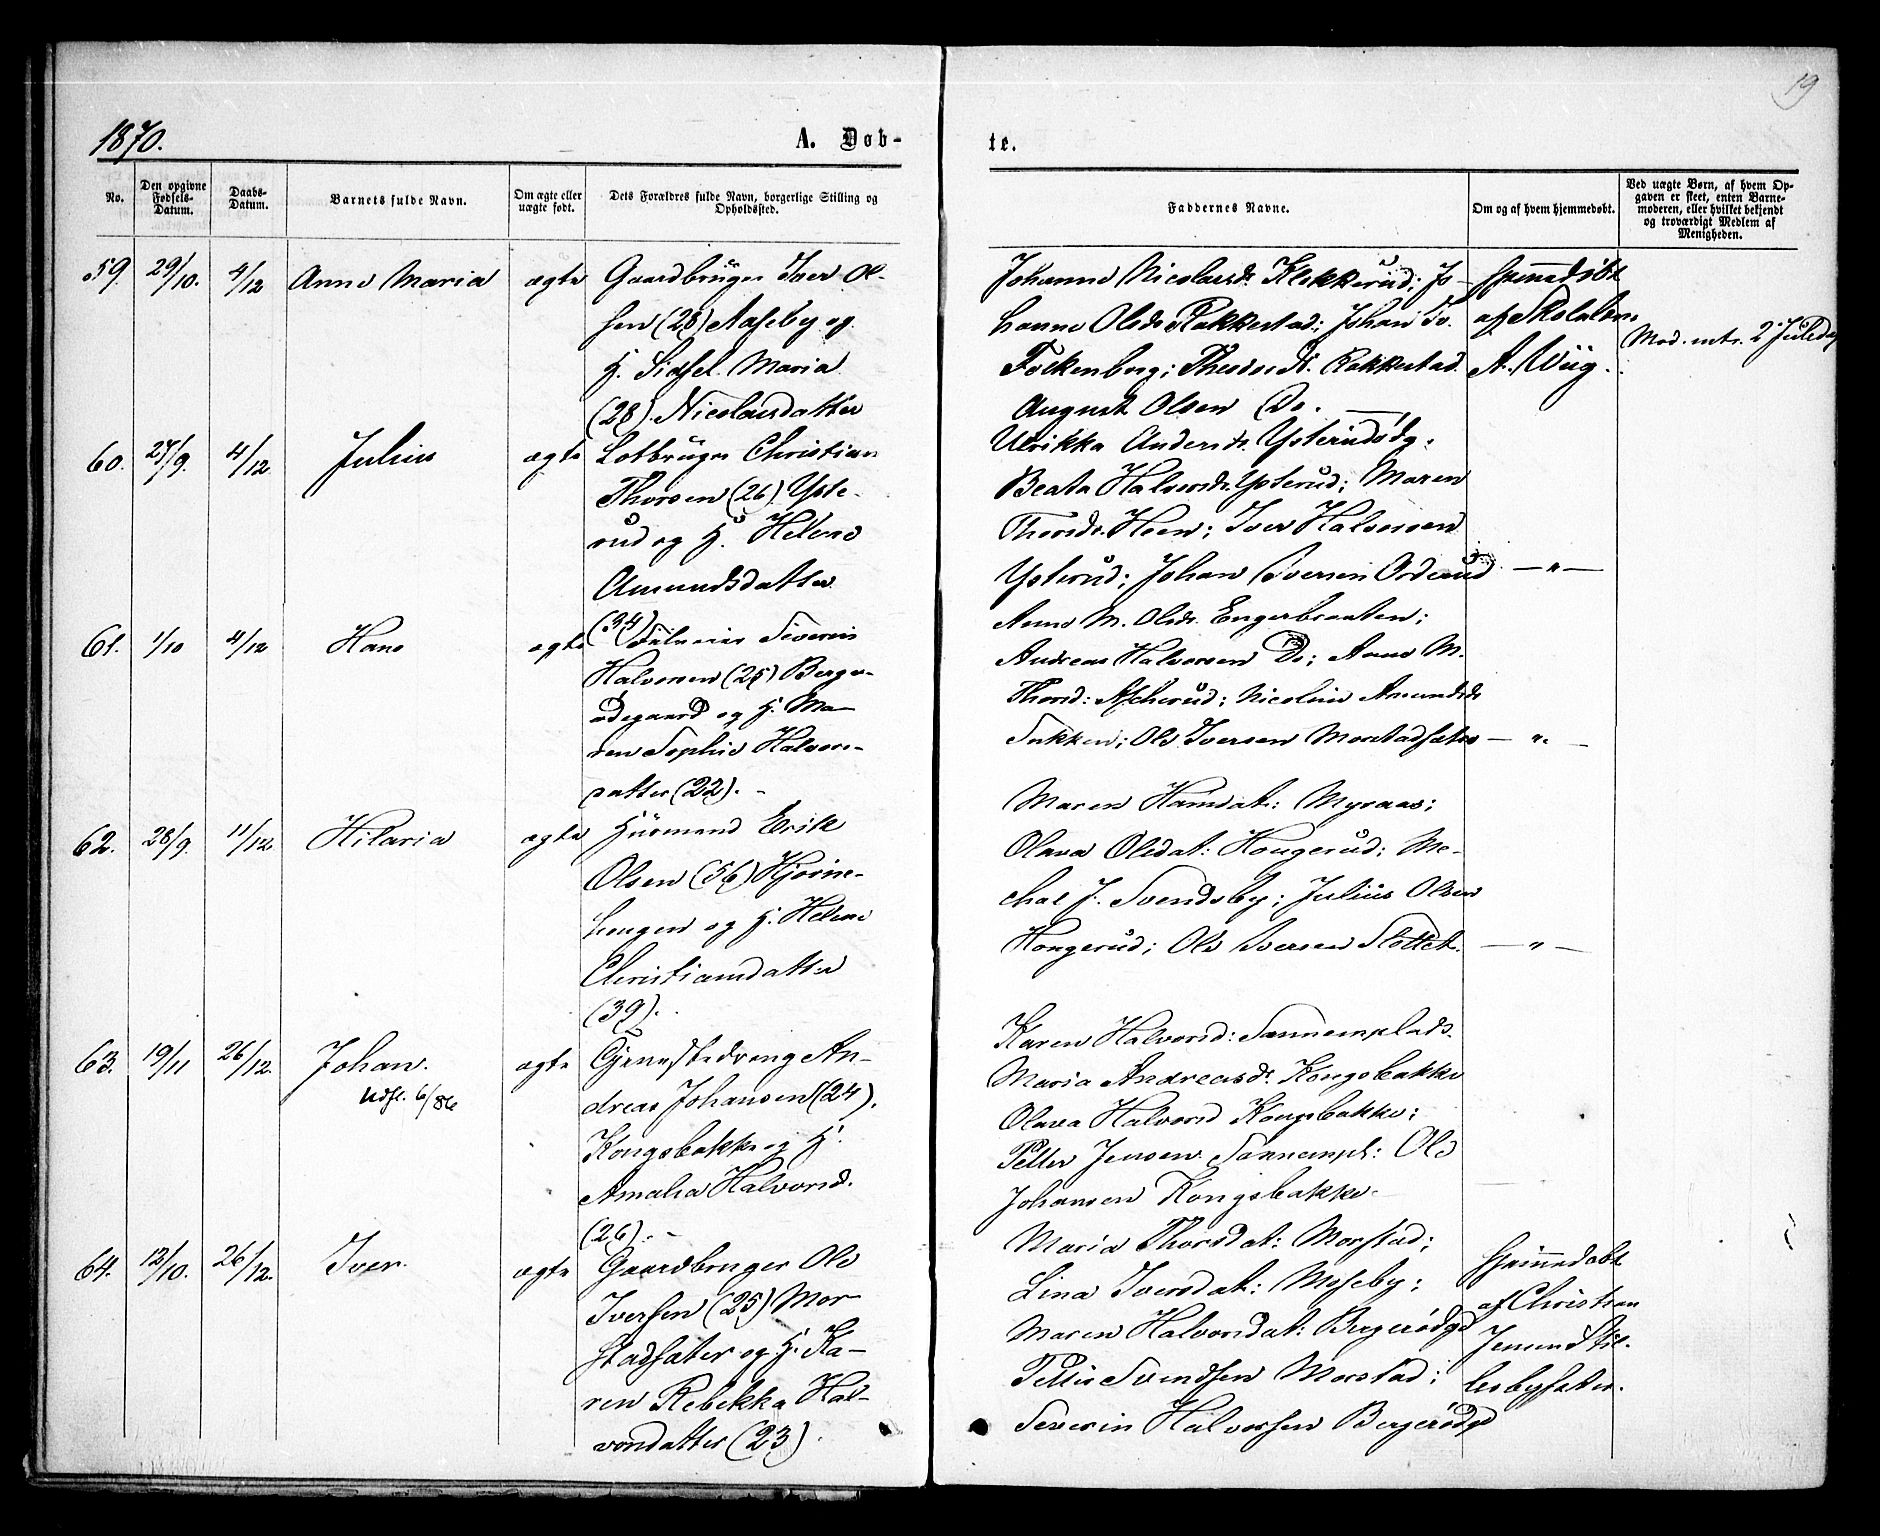 19
1870.
A. Døb-
te.
No.
Den opgivne Fødsels-Datum.
Daabs-Datum.
Barnets fulde Navn.
Om ægte eller uægte født.
Dets Forældres fulde Navn, borgerlige Stilling og Opholdssted.
Faddernes Navne.
Om og af hvem hjemmedøbt.
Ved uægte Børn, af hvem Opgaven er skeet, enten Barnemoderen, eller hvilket bekjendt og troværdigt Medlem af Menigheden.
59. 29/10. 4/12 Anne Maria ægte Gaardbruger Iver Ol-
sen (28) Aaseby og
H. Sidsel Maria
(28). Nicolaisdatter
Johanne Nicolaisdr. Klokkerud; Jo-
hanne Olsdr. Rakkestad; Johan
Falkenborg; Theodor Rakkestad.
August Olsen Do.
Hjemmedøbt
af Skolelær.
A. Wiig.
Mod. intr. 2 Juledag
60. 27/9. 4/12 Julius ægte Lotbruger Christian
Thorsen (26) Yste-
rud og H. Helene
Amundsdatter
(34)
Ulrikka Andersdr. Ysterudsødg.
Beata Halvorsdr. Ysterud; Maren
Thorsdr. Heen; Iver Halvorsen
Ysterud; Johan Iversen Orderud — " —
61. 1/10 4/12 Hans ægte Severin
Halvorsen (25) Berge-
ødegaard og H. Ma-
ren Sophie Halvors-
datter (22). -
Anne M. Olsdr. Engerbraaten;
Andreas Halvorsen Do; Anne M.
Thorsd: Ascherud; Nicoline Amundsdr
Sukken; Ole Iversen Morstadsæter — " —
62. 28/9. 11/12 Hilaria ægte Husmand Erik
Olsen (36) Hjørne-
haugen og H. Helene
Christiansdatter
(39).
Maren Hansdat: Myraas;
Olava Olsdat: Hougerud; Me-
chal J. Svendsby; Julius Olsen
Hougerud; Ole Iversen Slottet. — " —
63. 19/11 26/12. Johan. ægte Tjenestedreng An-
Udfl. 6/86
dreas Johansen (24).
Kongsbakke og H.
Amalia Halvorsd.
(26). -
Karen Halvorsd: Sannemplads.
Maria Andreasdr. Kongsbakke
Olava Halvorsd Kongsbakke;
Petter Jensen Sannempl: Ole
Johansen Kongsbakke.
64. 12/10. 26/12. Iver. ægte Gaardbruger Ole
Iversen (25) Mor-
stadsæter og H. Ka-
ren Rebekka Hal-
vorsdatter (23).
Maria Thorsdat: Morstad;
Lina Iversdat: Moseby;
Maren Halvorsdat: Bergerødgd
Svendsen Morstad;
Severin Halvorsen Bergerødgd
Hjemmedøbt
af Christian
Jensen Støl-
lesbysæter.